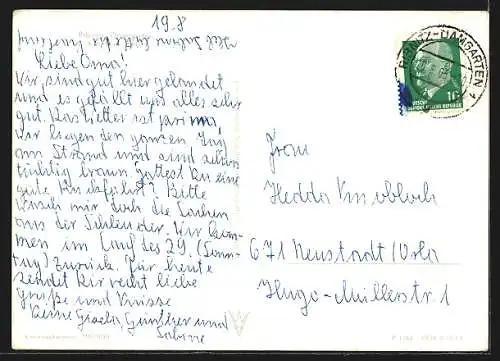 19.8
Liebe Oma!
Wir sind gut hier gelandet
und es gefällt uns alles sehr
gut. Das Wetter ist prima,
wir liegen den ganzen Tag
am Strand und sind schon
tüchtig braun. Hattest Du eine
gute Rückfahrt? Bitte
wasch mir doch die Sachen
aus der Schleuder. Wir kom-
men im Lauf des 29. (Sonn-
tag) zurück. Für heute
sendet Dir recht liebe
Grüße und Küsse
Deine Gisela, Günther und
Sabine
RIBNITZ-DAMGARTEN
10
DEUTSCHE DEMOKRATISCHE REPUBLIK
Frau
Hedda Knobloch
671 Neustadt/Orla
Hugo-Müllerstr. 1